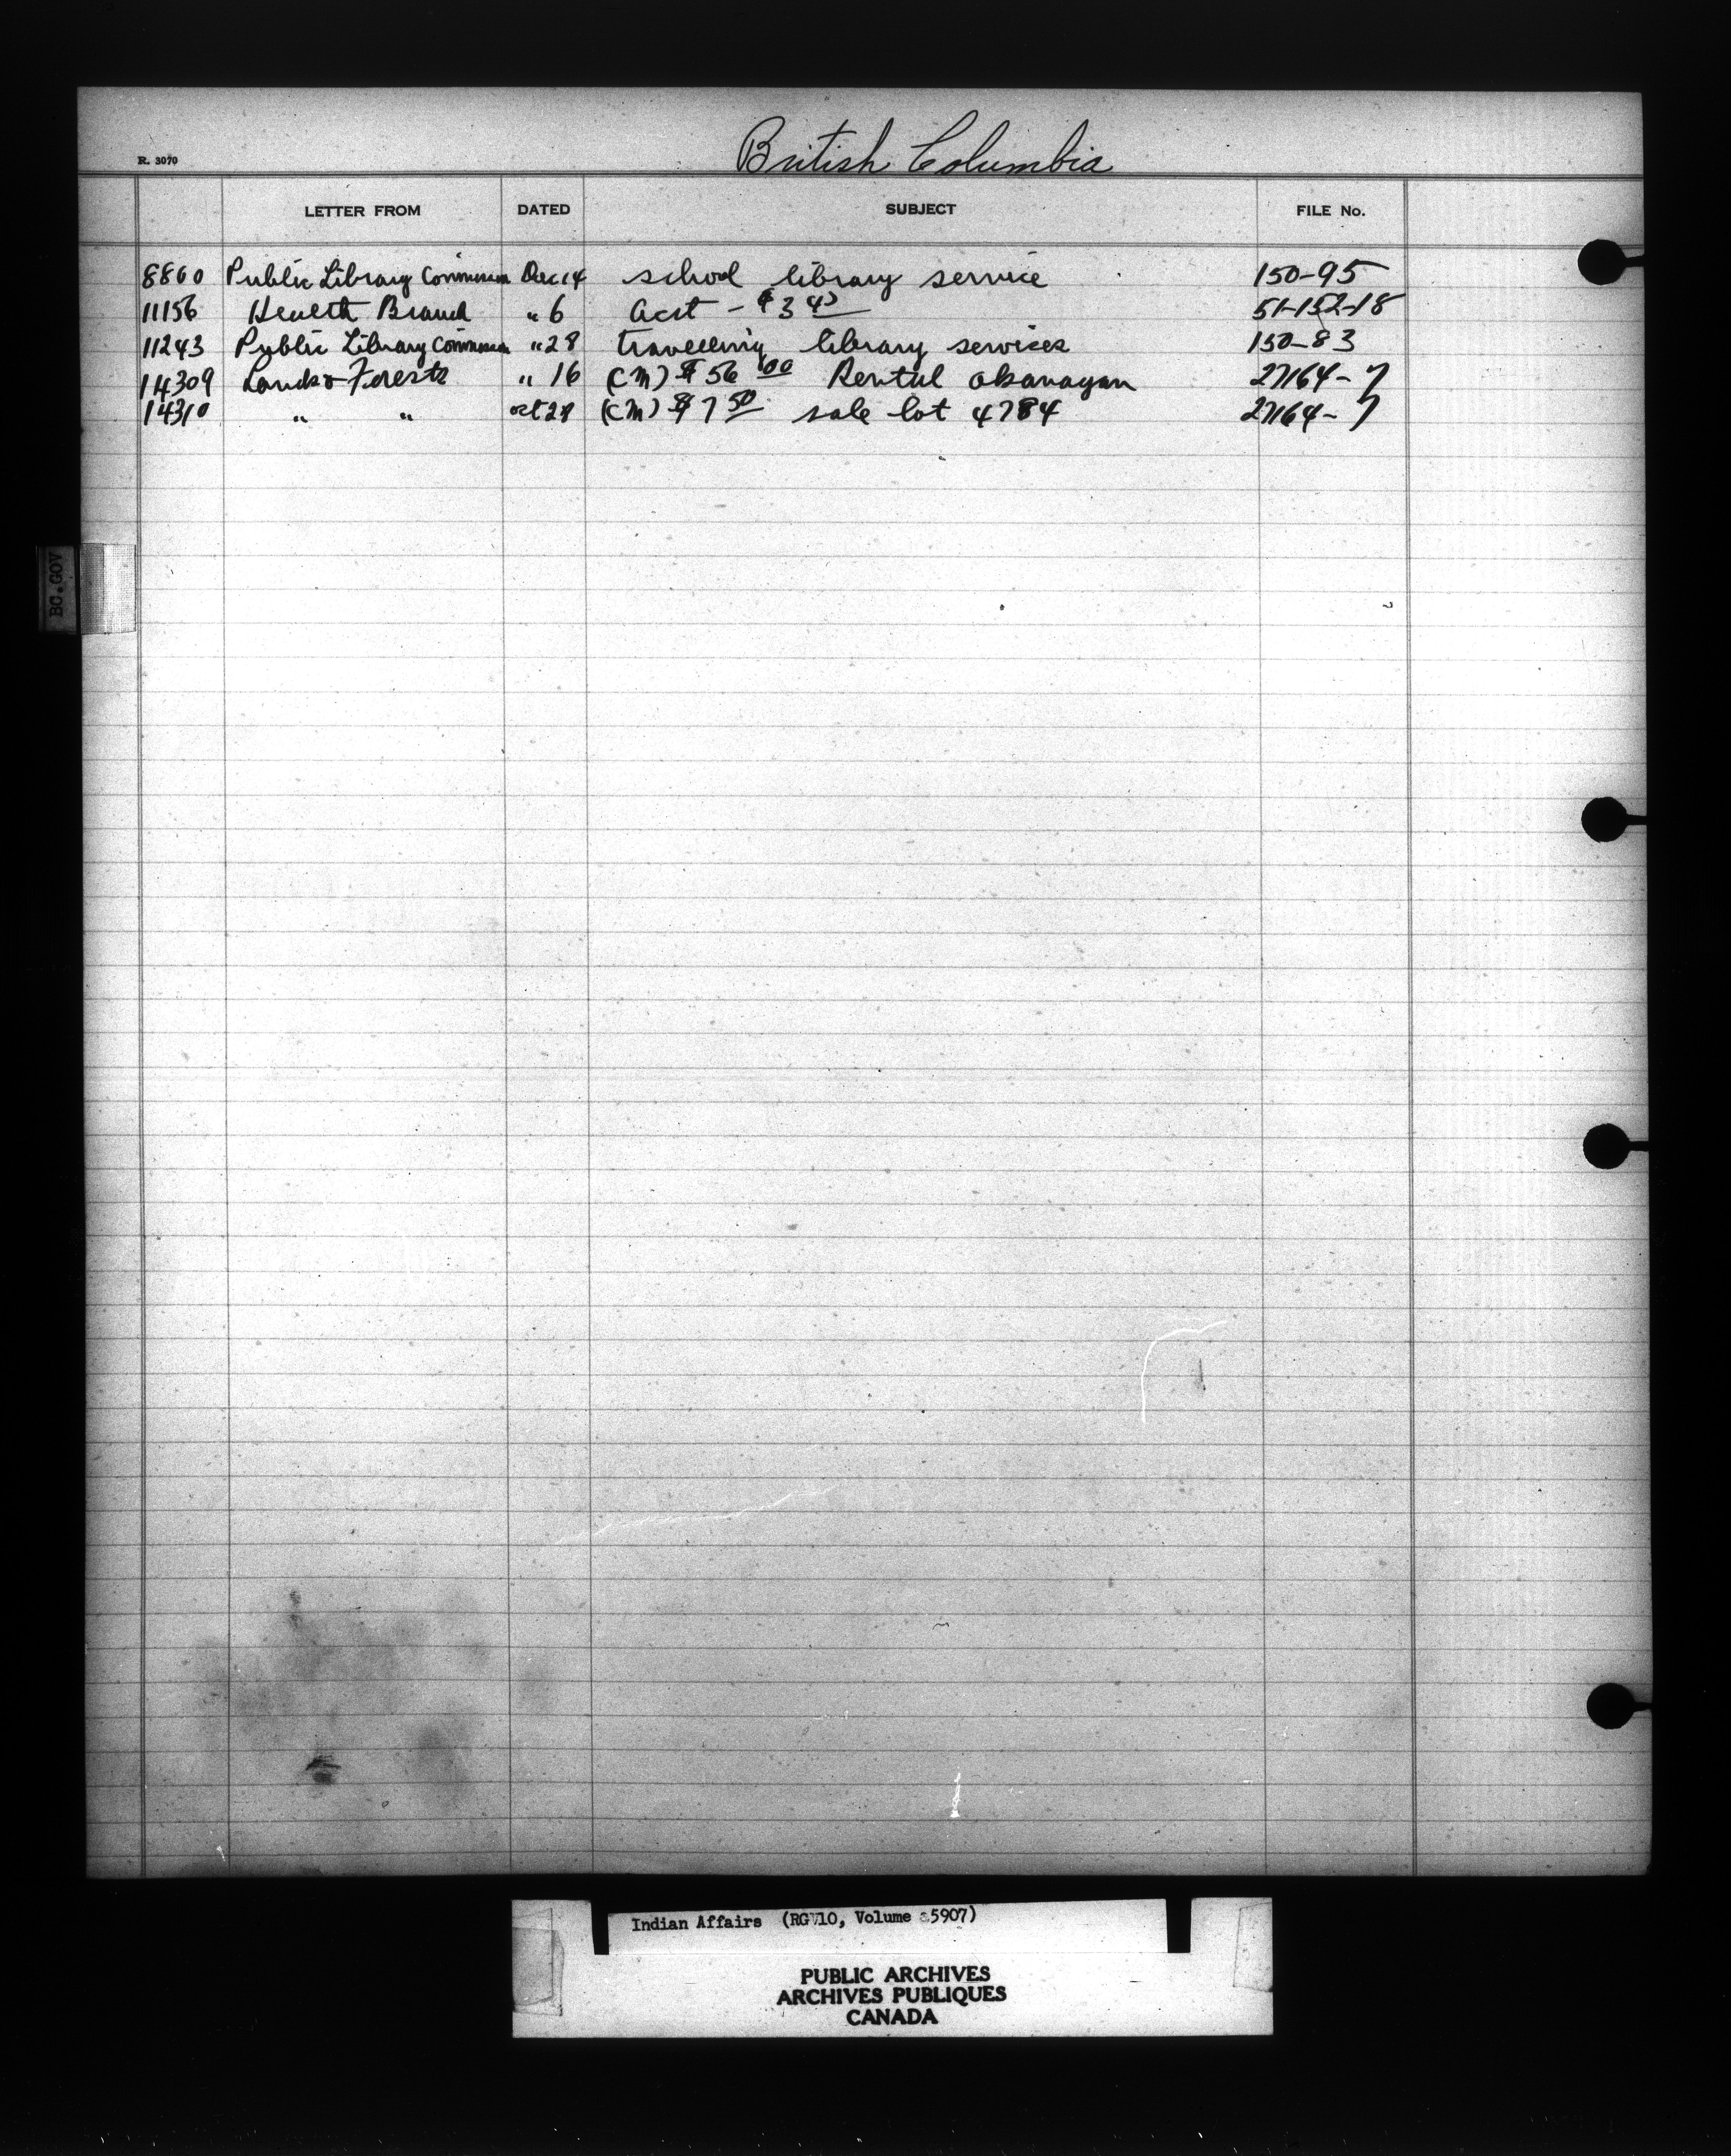 British Columbia
R. 3070
LETTER FROM DATED SUBJECT FILE No.
8860 Public Library Commission Dec 14 school library service 150-95
11156 Health Branch " 6 Acct - $3 45 51-152-18
11243 Public Library Commission " 28 travelling library services 150-83
14309 Lands & Forests " 16 (CM) $56 00 Rental Okanagan 27164-7
14310 " " Oct 28 (CM) $7 50 sale lot 4784 27164-7
BC.GOV
Indian Affairs (RG 10, Volume 5907)
PUBLIC ARCHIVES
ARCHIVES PUBLIQUES
CANADA